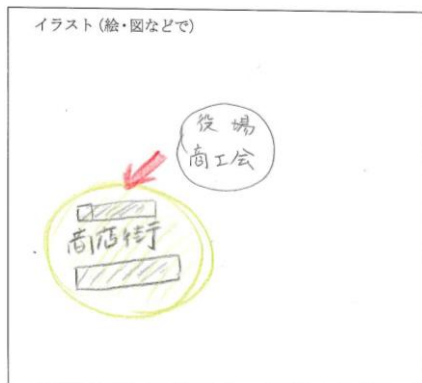 イラスト(絵・図などで)
役場
商工会
商店街